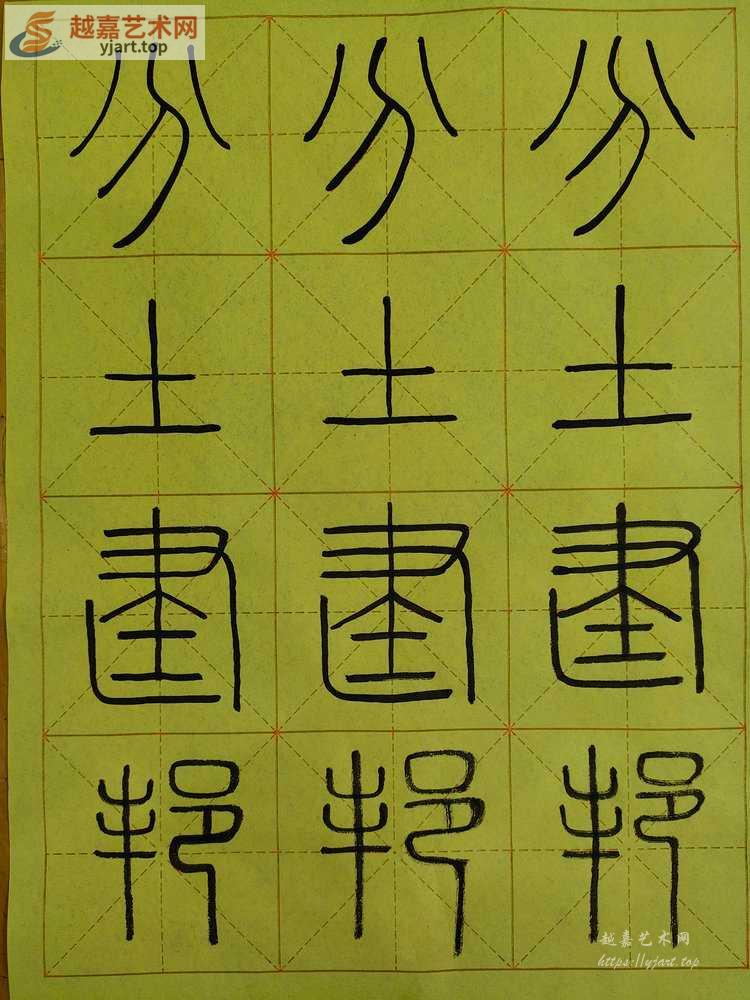 越嘉艺术网
yjart.top
分 分 分
土 土 土
建 建 建
邦 邦 邦
越嘉艺术网
https://yjart.top